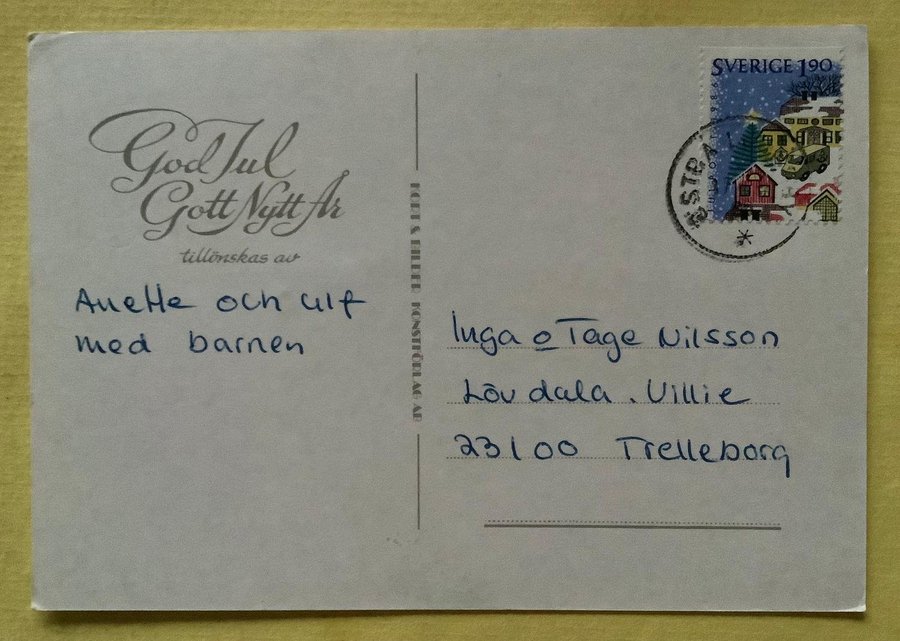 God Jul
Gott Nytt År
tillönskas av
Anette och Ulf
med barnen
SVERIGE 1.90
Inga o Tage Nilsson
Lövdala. Villie
23100 Trelleborg